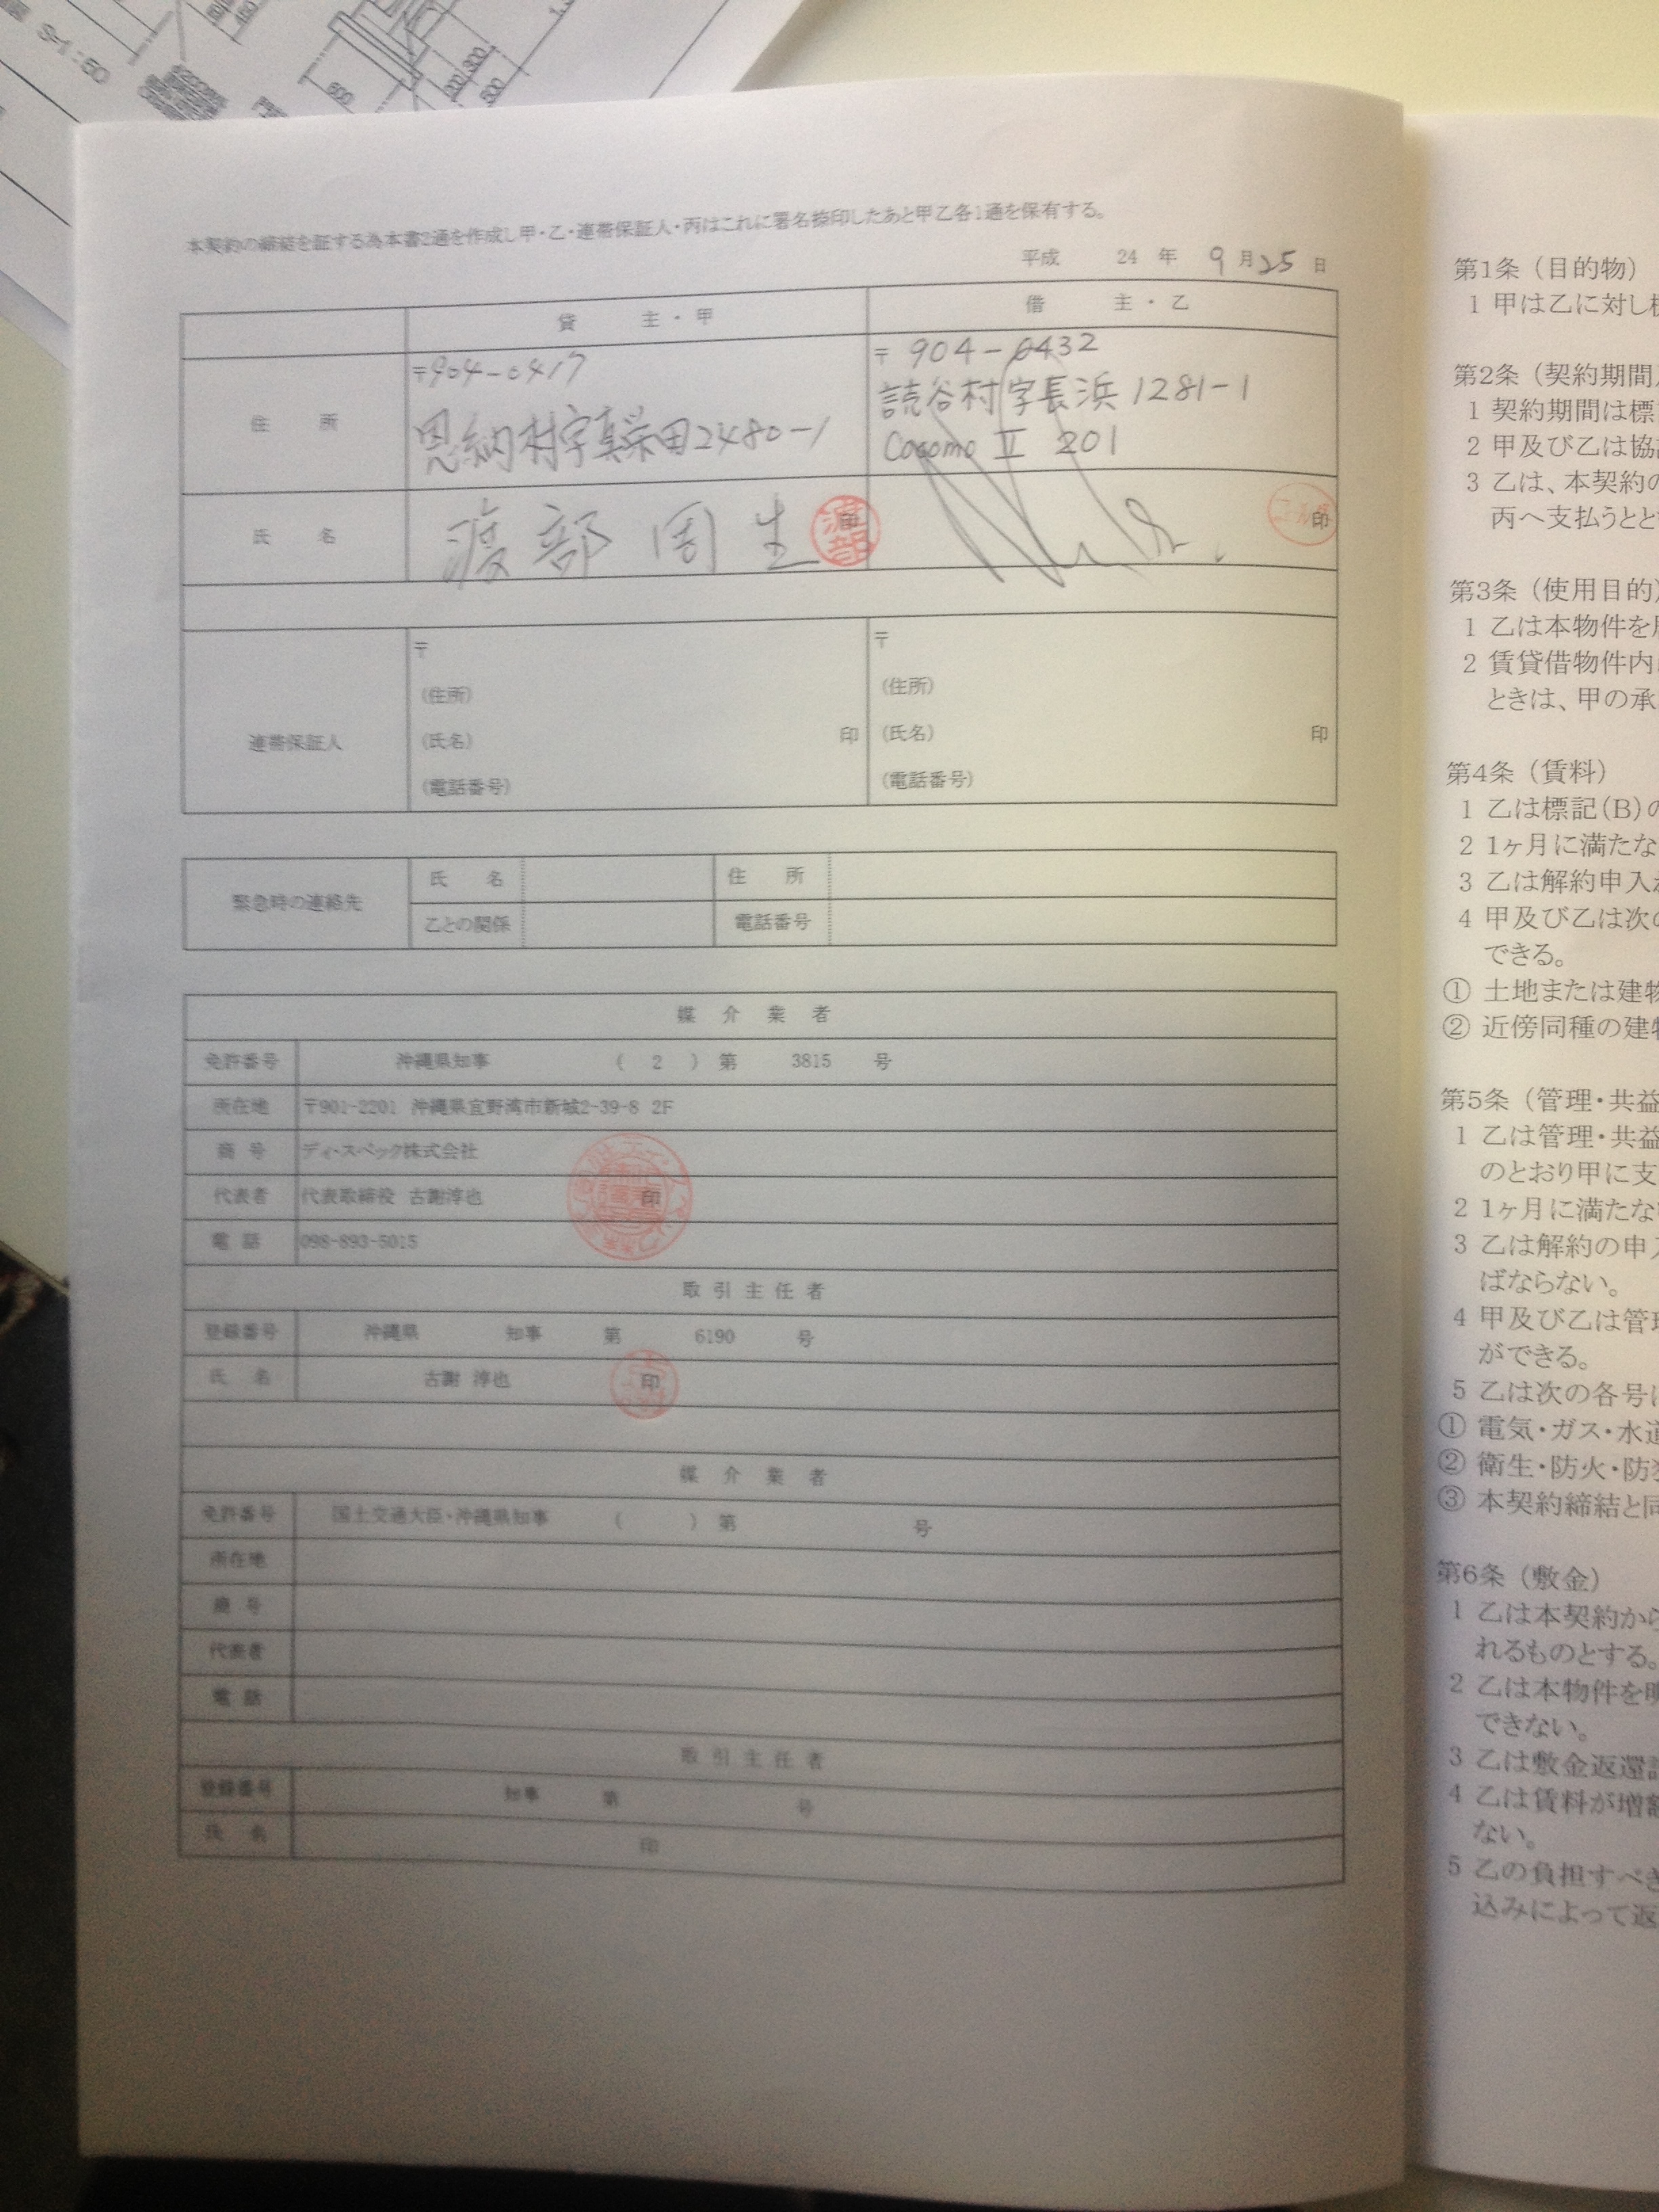 S=1:50
450
600
200
300
500
本契約の締結を証する為本書2通を作成し甲・乙・連帯保証人・丙はこれに署名捺印したあと甲乙各1通を保有する。
平成 24 年 9 月 25 日
貸 主・甲 借 主・乙
住 所
〒904-0417
恩納村字真栄田2480-1
〒 904-0432
読谷村字長浜 1281-1
Cocomo Ⅱ 201
氏 名 渡部 周生 印 印
渡部
連帯保証人
〒
(住所)
(氏名) 印
(電話番号)
〒
(住所)
(氏名) 印
(電話番号)
緊急時の連絡先
氏 名 住 所
乙との関係 電話番号
媒 介 業 者
免許番号 沖縄県知事 ( 2 ) 第 3815 号
所在地 〒901-2201 沖縄県宜野湾市新城2-39-8 2F
商 号 ディ・スペック株式会社
代表者 代表取締役 古謝淳也 印
電 話 098-893-5015
取 引 主 任 者
登録番号 沖縄県 知事 第 6190 号
氏 名 古謝 淳也 印
媒 介 業 者
免許番号 国土交通大臣・沖縄県知事 ( ) 第 号
所在地
商 号
代表者
電 話
取 引 主 任 者
登録番号 知事 第 号
氏 名 印
第1条（目的物）
1 甲は乙に対し
第2条（契約期間
1 契約期間は標
2 甲及び乙は協
3 乙は、本契約の
丙へ支払うとと
第3条（使用目的
1 乙は本物件を
2 賃貸借物件内
ときは、甲の承
第4条（賃料）
1 乙は標記(B)の
2 1ヶ月に満たな
3 乙は解約申入
4 甲及び乙は次の
できる。
① 土地または建物
② 近傍同種の建物
第5条（管理・共益
1 乙は管理・共益
のとおり甲に支
2 1ヶ月に満たな
3 乙は解約の申入
ばならない。
4 甲及び乙は管理
ができる。
5 乙は次の各号
① 電気・ガス・水道
② 衛生・防火・防犯
③ 本契約締結と同
第6条（敷金）
1 乙は本契約から
れるものとする。
2 乙は本物件を明
できない。
3 乙は敷金返還
4 乙は賃料が増額
ない。
5 乙の負担すべき
込みによって返